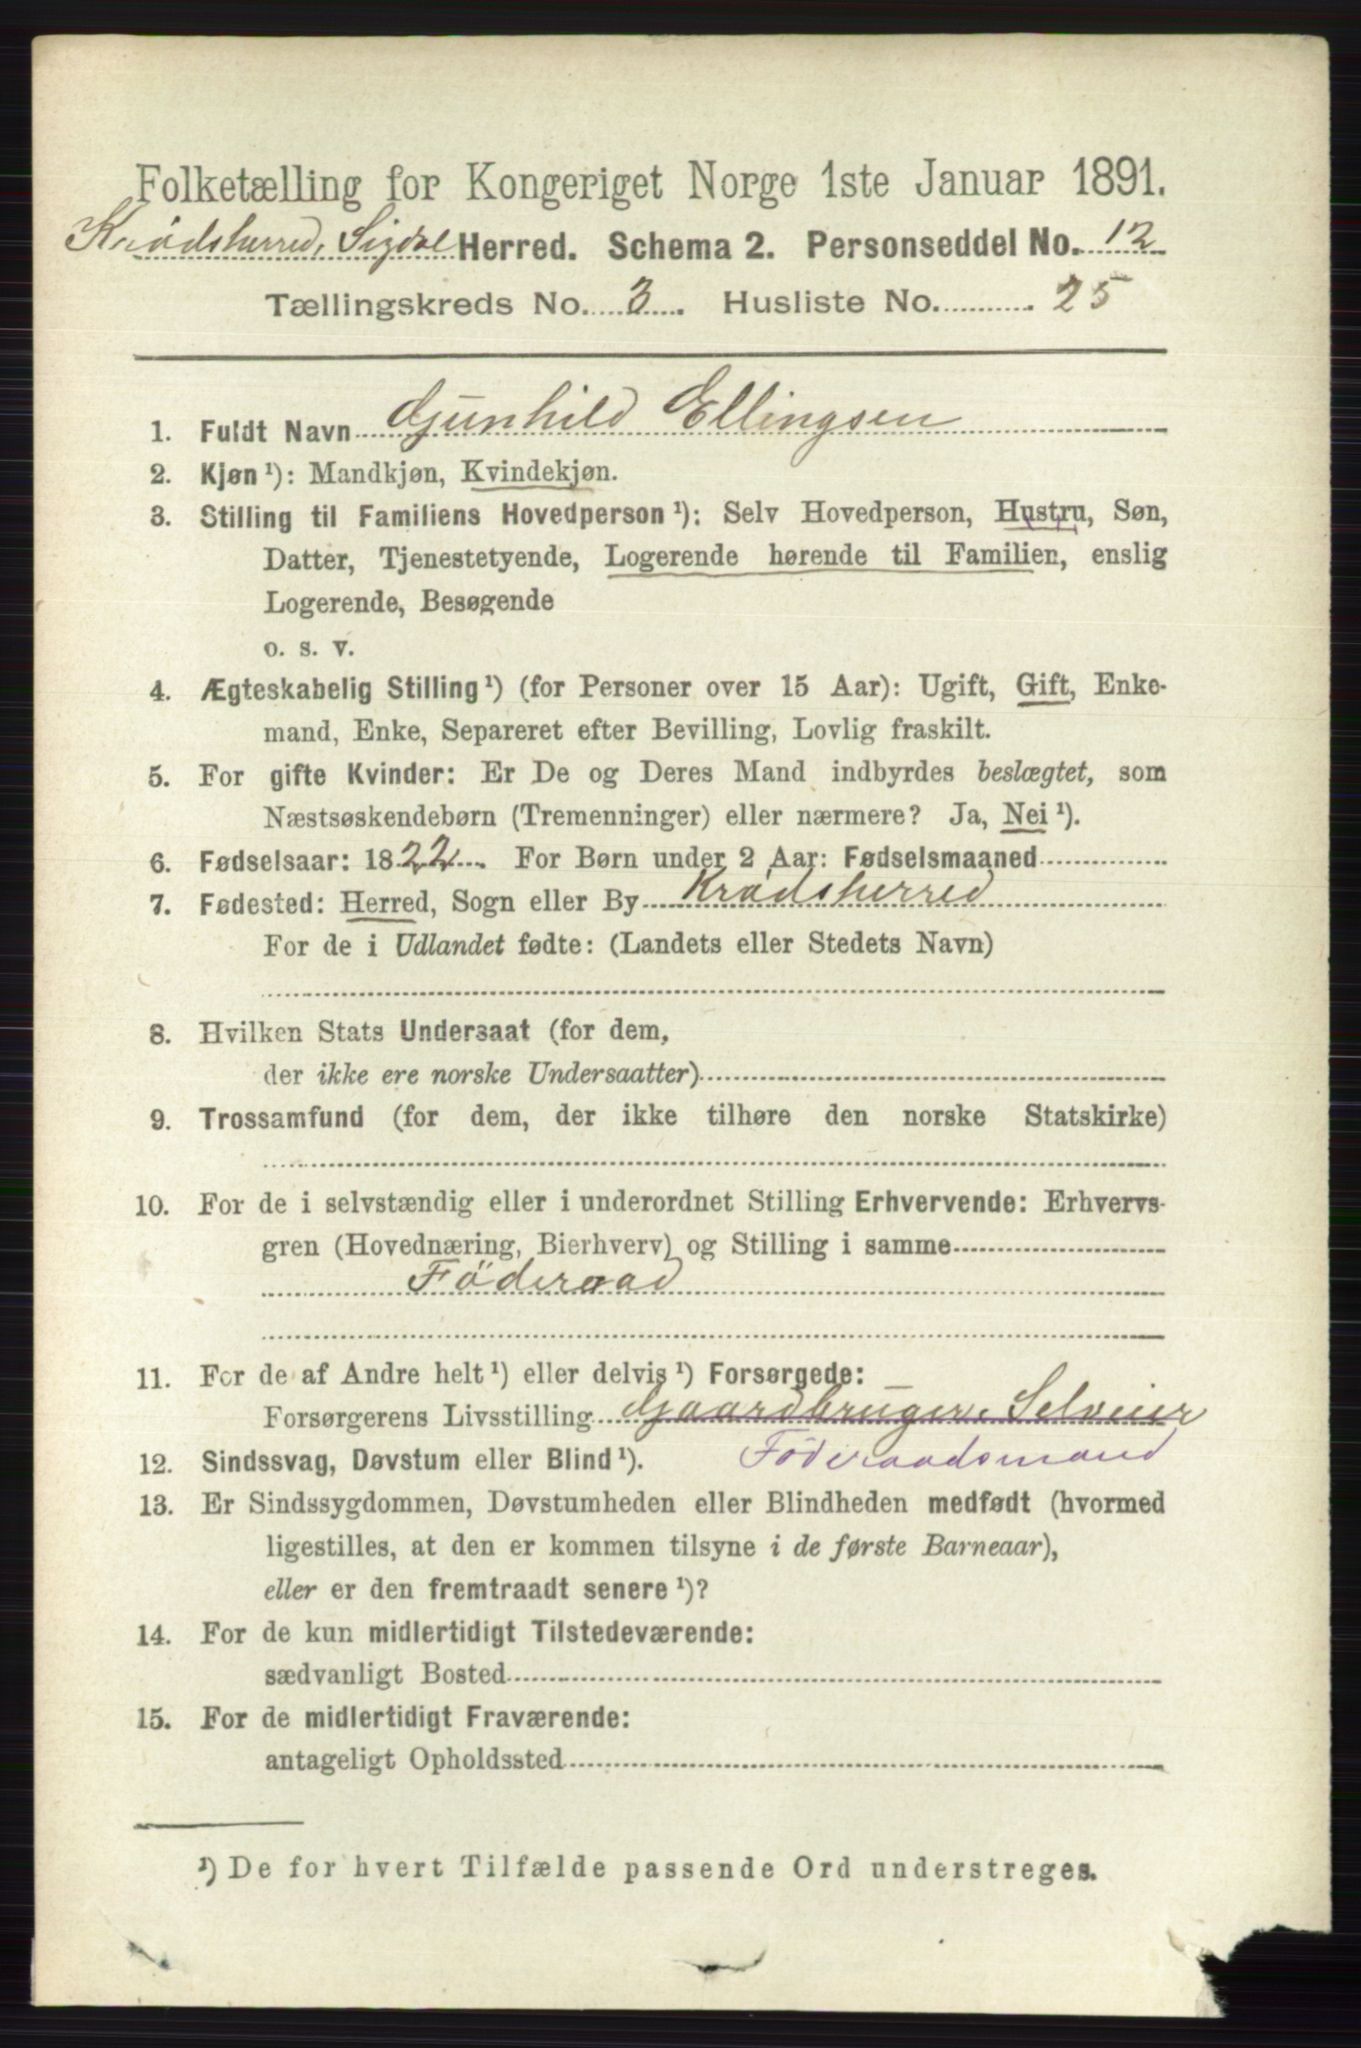 Folketælling for Kongeriget Norge 1ste Januar 1891.
Krødsherred, Sigdal Herred. Schema 2. Personseddel No. 12
Tællingskreds No. 3. Husliste No. 25
1. Fuldt Navn Gjunhild Ellingsen
2. Kjøn ¹): Mandkjøn, Kvindekjøn.
3. Stilling til Familiens Hovedperson ¹): Selv Hovedperson, Hustru, Søn,
Datter, Tjenestetyende, Logerende hørende til Familien, enslig
Logerende, Besøgende
o. s. v.
4. Ægteskabelig Stilling ¹) (for Personer over 15 Aar): Ugift, Gift, Enke-
mand, Enke, Separeret efter Bevilling, Lovlig fraskilt.
5. For gifte Kvinder: Er De og Deres Mand indbyrdes beslægtet, som
Næstsøskendebørn (Tremenninger) eller nærmere? Ja, Nei ¹).
6. Fødselsaar: 1822. For Børn under 2 Aar: Fødselsmaaned
7. Fødested: Herred, Sogn eller By Krødsherred
For de i Udlandet fødte: (Landets eller Stedets Navn)
8. Hvilken Stats Undersaat (for dem,
der ikke ere norske Undersaatter)
9. Trossamfund (for dem, der ikke tilhøre den norske Statskirke)
10. For de i selvstændig eller i underordnet Stilling Erhvervende: Erhvervs-
gren (Hovednæring, Bierhverv) og Stilling i samme
Föderaad
11. For de af Andre helt ¹) eller delvis ¹) Forsørgede:
Forsørgerens Livsstilling Gaardbruger, Selveier
12. Sindssvag, Døvstum eller Blind ¹). Föderaadsmand
13. Er Sindssygdommen, Døvstumheden eller Blindheden medfødt (hvormed
ligestilles, at den er kommen tilsyne i de første Barneaar),
eller er den fremtraadt senere ¹)?
14. For de kun midlertidigt Tilstedeværende:
sædvanligt Bosted
15. For de midlertidigt Fraværende:
antageligt Opholdssted
¹) De for hvert Tilfælde passende Ord understreges.